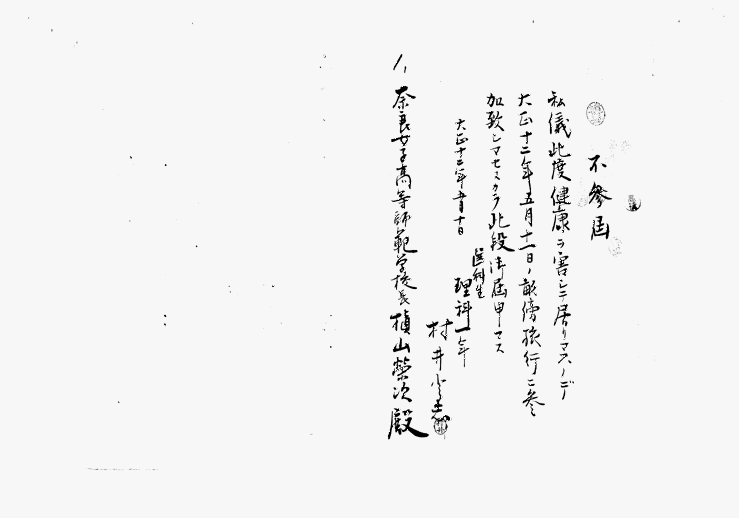 不參屆
私儀此度健康ヲ害シテ居リマスノデ
大正十二年五月十一日ノ畝傍旅行ニ參
加致シマセンカラ此段御屆申マス
大正十二年五月十日
理科一年
村井
奈良女子高等師範学校長 槙山榮次殿